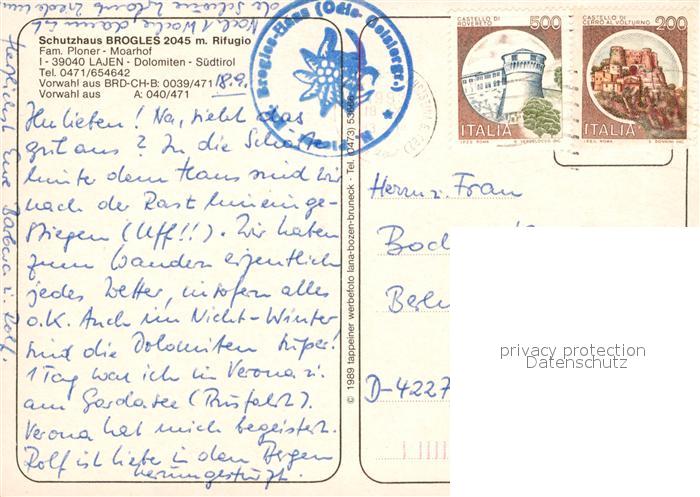 Noch 1 Woche dann ist
die schöne
Schutzhaus BROGLES 2045 m. Rifugio
Fam. Ploner - Moarhof
I - 39040 LAJEN - Dolomiten - Südtirol
Tel. 0471/654642
Vorwahl aus BRD-CH-B: 0039/471
Vorwahl aus A: 040/471
18.9.
Ihr Lieben! Na, sieht das
gut aus? In die Scharte
hinter dem Haus sind wir
nach der Rast hineinge-
stiegen (Uff!!). Wir haben
zum Wandern eigentlich
jedes Wetter, insofern alles
o.K. Auch im Nicht-Winter
sind die Dolomiten super!
1 Tag war ich in Verona u.
am Gardasee (Busfahrt).
Verona hat mich begeistert.
Rolf ist lieber in den Bergen
herumgestürzt.
Herzlichst Eure Barbara u. Rolf.
Brogles-Haus
© 1989 tappeiner werbefoto lana-bozen-bruneck - Tel. (0473)
CASTELLO DI
ROVERETO
500
ITALIA
CASTELLO DI
CERRO AL VOLTURNO
200
ITALIA
Herrn u. Frau
D-4227
privacy protection
Datenschutz